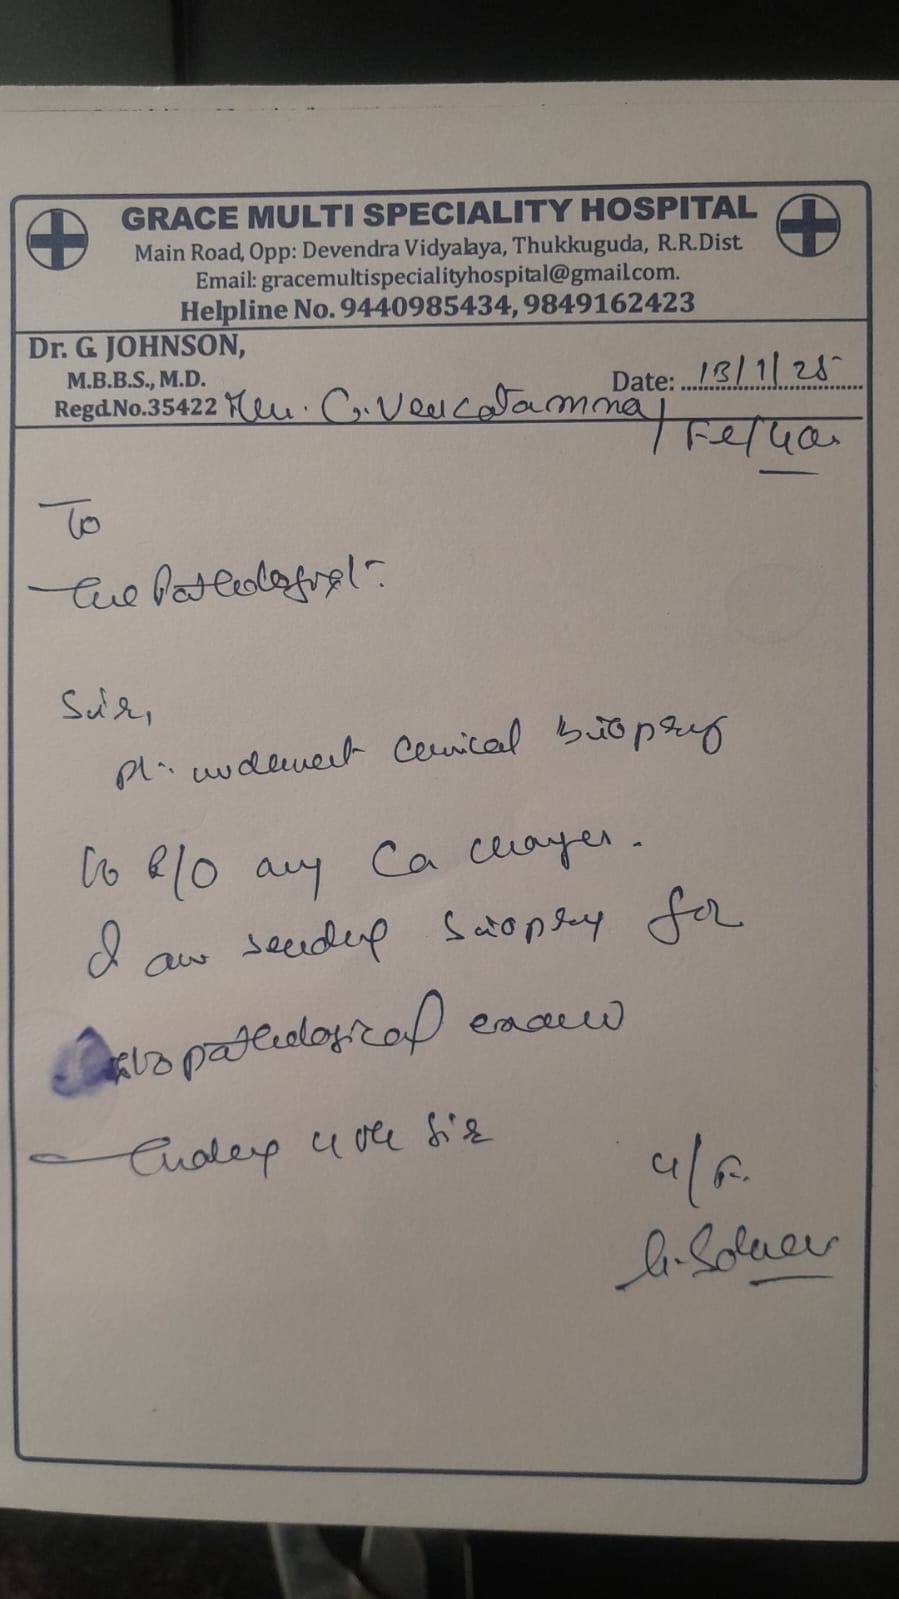 GRACE MULTI SPECIALITY HOSPITAL
Main Road, Opp: Devendra Vidyalaya, Thukkuguda, R.R.Dist
Email: gracemultispecialityhospital@gmail.com.
Helpline No. 9440985434, 9849162423
Dr. G. JOHNSON,
M.B.B.S., M.D.
Date: 13/1/25
Regd.No.35422 C. Vencatamma
To
The Pathologist
Sir,
Pl. cervical biopsy
to R/O any Ca changes.
I am sending biopsy for
histopathological exam
Thanking you Sir